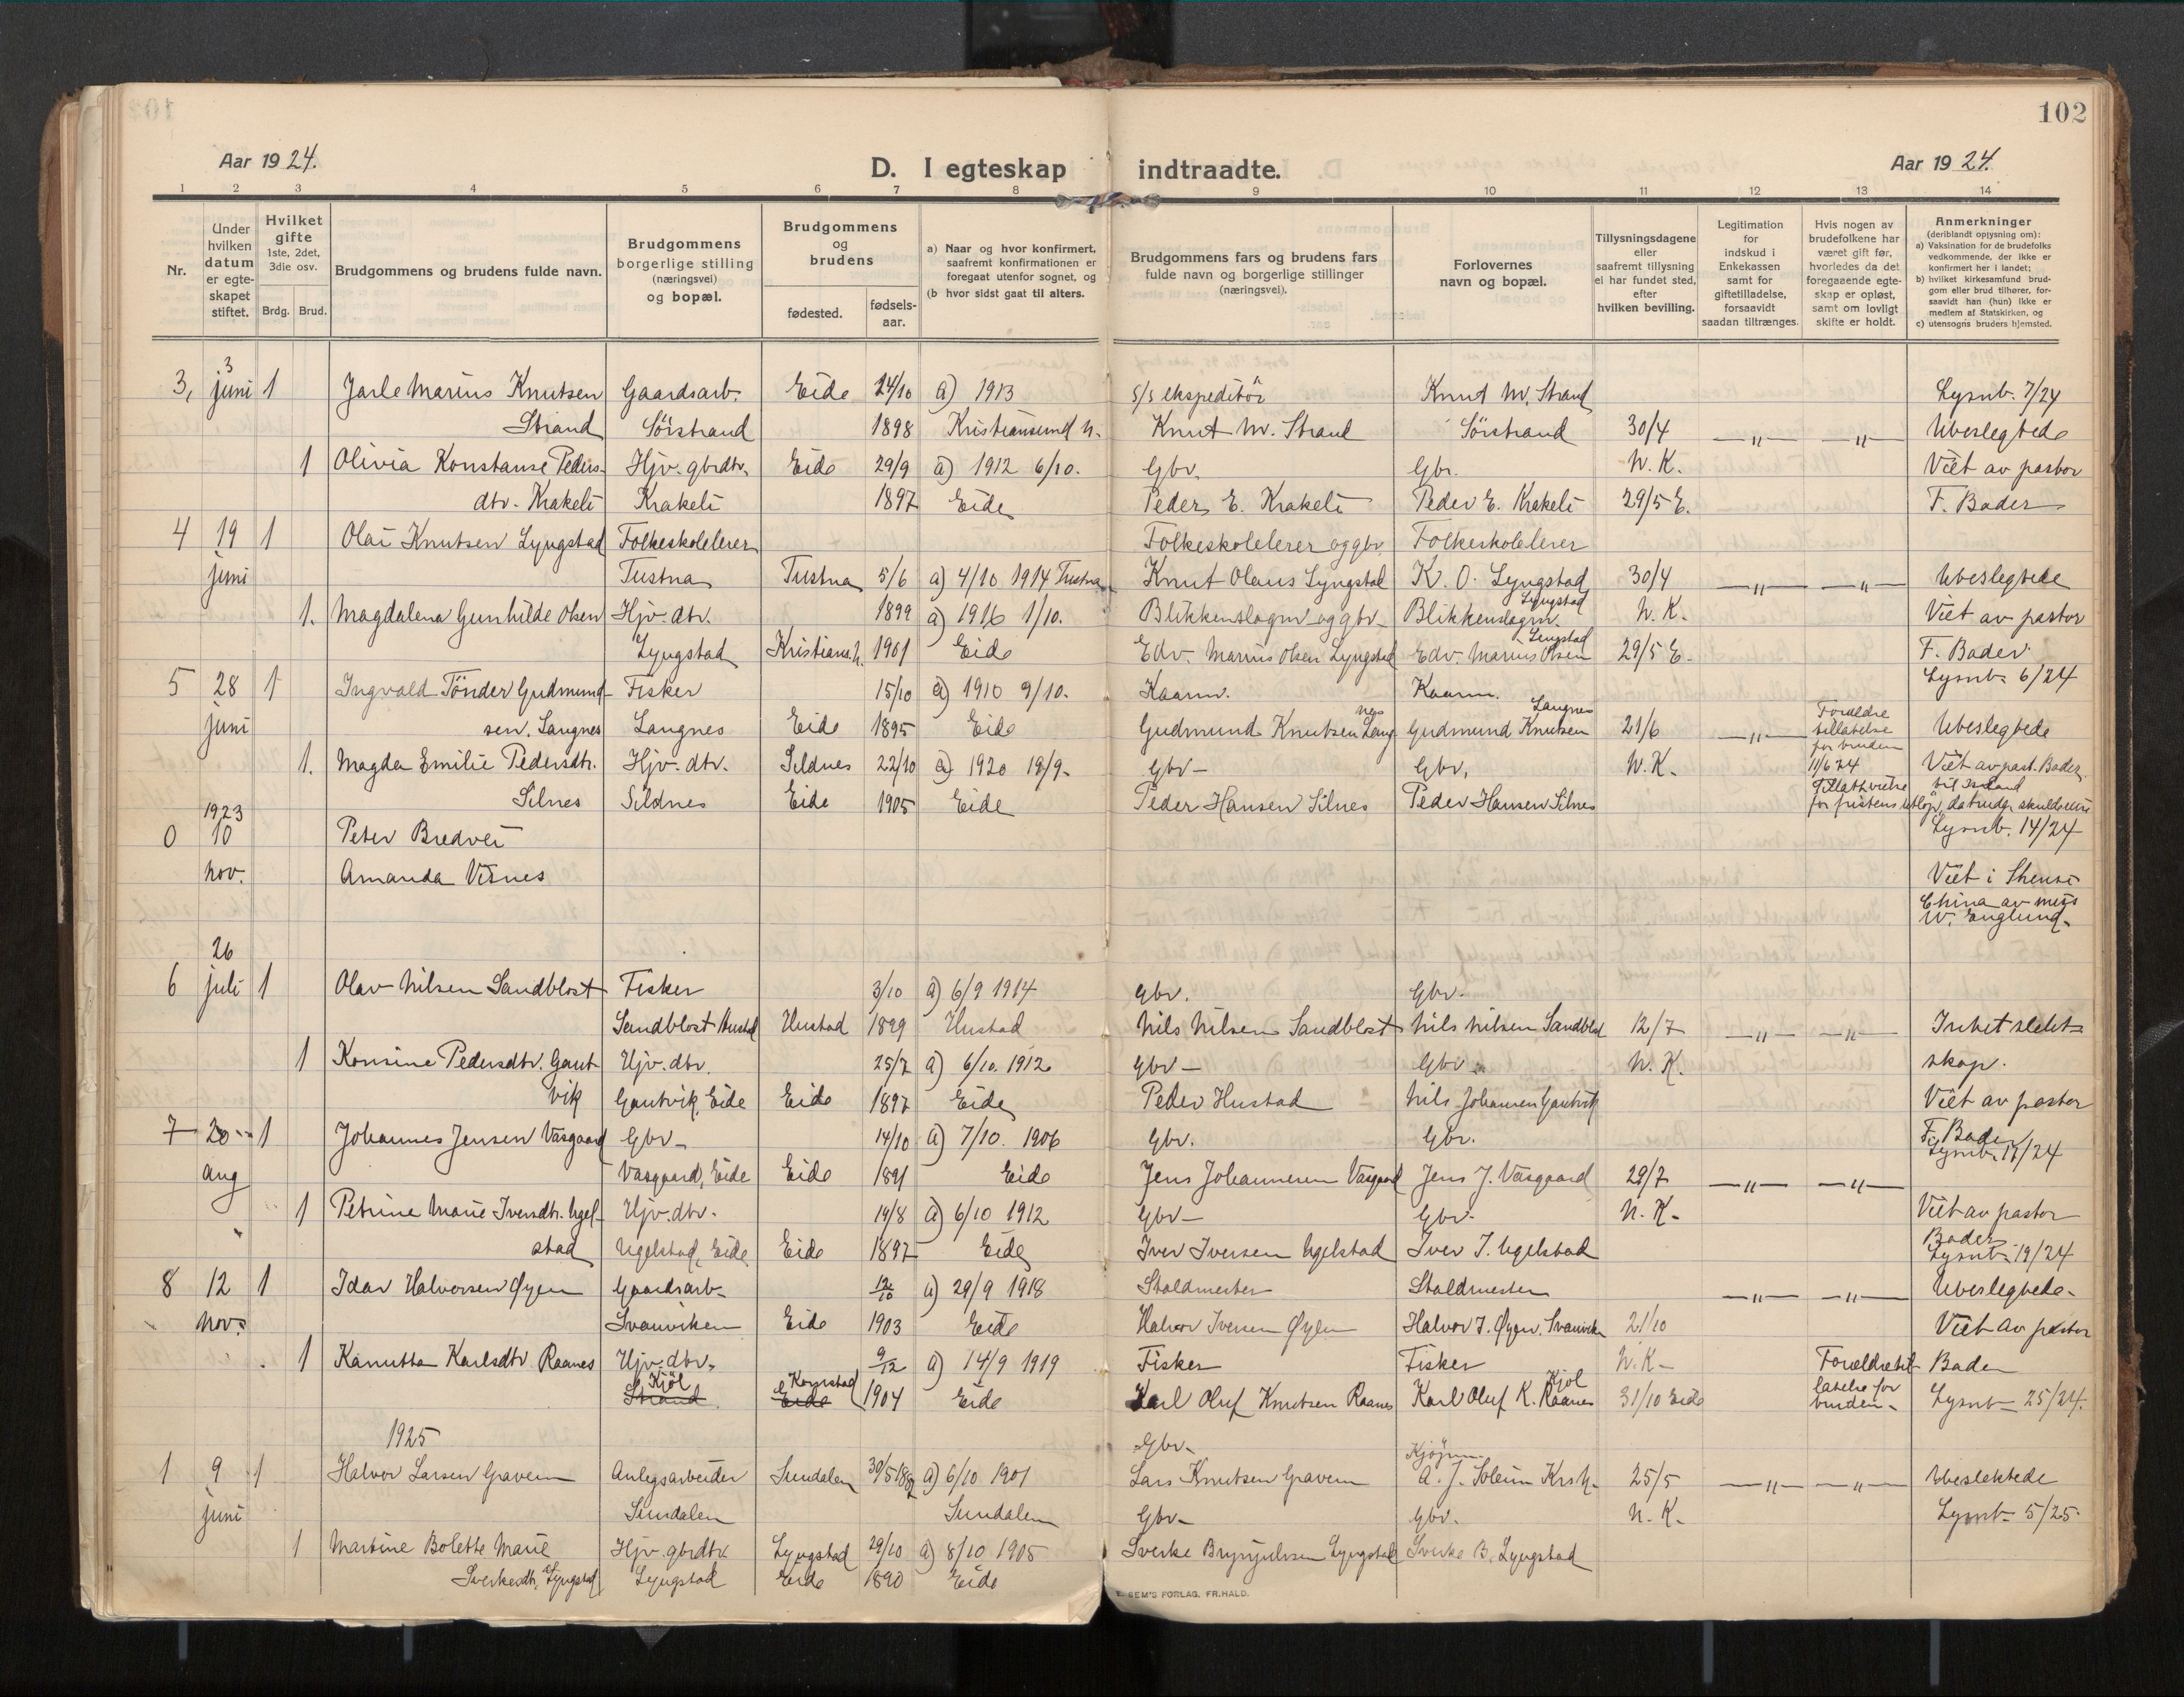 102
Aar 1924.
D. I egteskap indtraadte.
Aar 1924.
1 2 3 4 5 6 7 8 9 10 11 12 13 14
Nr.
Under hvilken datum er egte-skapet stiftet.
Hvilket gifte 1ste, 2det, 3die osv.
Brdg. Brud.
Brudgommens og brudens fulde navn.
Brudgommens borgerlige stilling (næringsvei) og bopæl.
Brudgommens og brudens
fødested.
fødsels-aar.
a) Naar og hvor konfirmert, saafremt konfirmationen er foregaat utenfor sognet, og
(b hvor sidst gaat til alters.
Brudgommens fars og brudens fars fulde navn og borgerlige stillinger (næringsvei).
Forlovernes navn og bopæl.
Tillysningsdagene eller saafremt tillysning ei har fundet sted, efter hvilken bevilling.
Legitimation for indskud i Enkekassen samt for giftetilladelse, forsaavidt saadan tiltrænges.
Hvis nogen av brudefolkene har været gift før, hvorledes da det foregaaende egte-skap er opløst, samt om lovligt skifte er holdt.
Anmerkninger
(deriblandt oplysning om):
a) Vaksination for de brudefolks vedkommende, der ikke er konfirmert her i landet;
b) hvilket kirkesamfund brud-gom eller brud tilhører, for-saavidt han (hun) ikke er medlem af Statskirken, og
c) utensogns bruders hjemsted.
3
3, juni 1 Jarle Marius Knutsen Gaardsarb. Eide 24/10 a) 1913 S/S ekspeditör Knut M. Strand Lysnb. 7/24
Strand Sörstrand 1898 Kristiansund N. Knut M. Strand Sörstrand 30/4 —„— —„— Ubeslegtede
1 Olivia Konstanse Peders- Hjv. gbrdtr. Eide 29/9 a) 1912 6/10. Gbr. Gbr. N. K. Viet av pastor
dtr. Krakeli Krakeli 1897 Eide Peder E. Krakeli Peder E. Krakeli 29/5 E. F. Bader
4 19 1 Olai Knutsen Lyngstad Folkeskolelerer Folkeskolelerer og gbr. Folkeskolelerer
juni Tustna Tustna 5/6 a) 4/10 1914 Tustna Knut Olaus Lyngstad K. O. Lyngstad 30/4 —„— —„— Ubeslegtede
Lyngstad
1. Magdalena Gunhilde Olsen Hjv. dtr. 1899 a) 1916 1/10. Blikkenslagm og gbr. Blikkenslagm. N. K. Viet av pastor
Lengstad
Lyngstad Kristians. N. 1901 Eide Edv. Marius Olsen Lyngstad Edv. Marius Olsen 29/5 E. F. Bader
Lysnb. 6/24
5 28 1 Ingvald Tönder Gudmund- Fisker 15/10 a) 1910 9/10. Kaarm. Kaarm.
nes Langnes Foreldre
juni sen. Langnes Langnes Eide 1895 Eide Gudmund Knutsen Lang- Gudmund Knutsen 21/6 —„— tillatelse Ubeslegtede
for bruden
1. Magda Emilie Pedersdtr. Hjv. dtr. Sildnes 22/10 a) 1920 19/9. Gbr. Gbr. N. K. 11/6 24 Viet av past. Bader.
Silnes Sildnes Eide 1905 Eide Peder Hansen Silnes Peder Hansen Silnes
for fristens utløp, da brudg. skulde reise til Island
1923
0 10 Peter Bredvei Lysnb. 14/24
nov. Amanda Visnes Viet i Shensi
China av miss
W. Englund.
26
6 juli 1 Olav Nilsen Sandblost Fisker 3/10 a) 6/9 1914 Gbr. Gbr.
Sandblost Hustad Hustad 1899 Hustad Nils Nilsen Sandblost Nils Nilsen Sandblost 12/7 —„— —„— Intet slekt-
1 Konsine Pedersdtr. Gaut- Hjv. dtr. 25/7 a) 6/10. 1912 Gbr. Gbr. N. K. skap.
vik Gautvik, Eide Eide 1897 Eide Peder Hustad Nils Johansen Gautvik Viet av pastor
F. Bader
7 20 1 Johannes Jensen Vasgaard Gbr. 14/10 a) 7/10. 1906 Gbr. Gbr. Lysnb. 17/24
aug Vasgaard, Eide Eide 1891 Eide Jens Johannesen Vasgaard Jens J. Vasgaard 29/7 —„— —„—
1 Petrine Marie Iversdtr. Ugel- Hjv. dtr. 19/8 a) 6/10 1912 Gbr. Gbr. N. K. Viet av pastor
Bader
stad Ugelstad, Eide Eide 1897 Eide Iver Iversen Ugelstad Iver I. Ugelstad Lysnb. 19/24
8 12 1 Idar Halvorsen Øyen Gaardsarb. 12/10 a) 29/9 1918 Staldmester Staldmester —„— —„— Ubeslegtede.
nov. Svanviken Eide 1903 Eide Halvor Iversen Øyen Halvor I. Øyen, Svanviken 21/10 Viet av pastor
1 Kanutta Karlsdtr. Raanes Hjv. dtr. 9/12 a) 14/9 1919 Fisker Fisker N. K. Foreldretil- Bader
Kjöl Kornstad Kjöl
Strand Eide 1904 Eide Karl Oluf Knutsen Raanes Karl Oluf K. Raanes 31/10 Eide latelse for bruden. Lysnb. 25/24.
1925 Gbr. Kjøpm.
1 9 1 Halvor Larsen Gravem Anlegsarbeider Sundalen 30/5 1882 a) 6/10 1901 Lars Knutsen Gravem A. J. Soleim Kr.s N. 25/5 —„— —„— Ubeslektede
juni Sundalen Sundalen Gbr. Gbr. N. K. Lysnb. 5/25.
1 Martine Bolette Marie Hjv. gbrdtr. Lyngstad 29/10 a) 8/10 1905 Sverke Brynjulvsen Lyngstad Sverke B. Lyngstad
Sverkesdtr. Lyngstad Lyngstad Eide 1890 Eide
SEM'S FORLAG, FR.HALD.